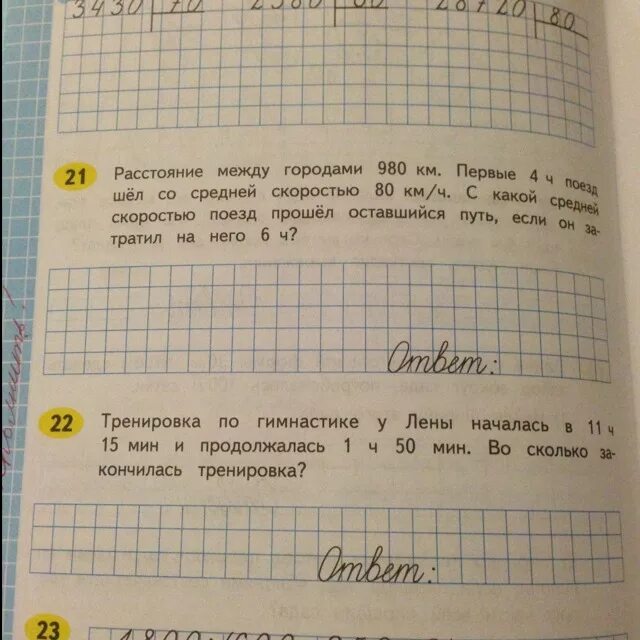 3430 70 2380 28720 80
21 Расстояние между городами 980 км. Первые 4 ч поезд
шёл со средней скоростью 80 км/ч. С какой средней
скоростью поезд прошёл оставшийся путь, если он за-
тратил на него 6 ч?
Ответ:
22 Тренировка по гимнастике у Лены началась в 11 ч
15 мин и продолжалась 1 ч 50 мин. Во сколько за-
кончилась тренировка?
Ответ:
23